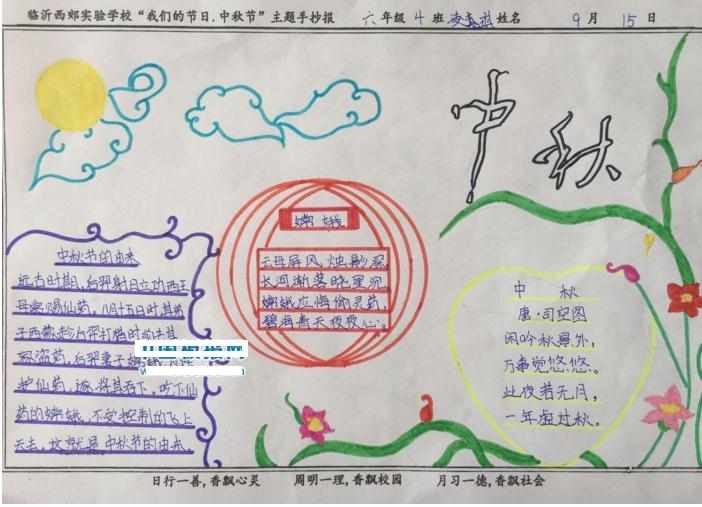 临沂西郊实验学校“我们的节日.中秋节”主题手抄报 六年级 4 班 姓名 9 月 15 日
中秋
中秋节的由来
远古时期,后羿射日立功,西王
母娘赐仙药,八月十五日时其弟
子西蒙趁后羿打猎时
盗药,后羿妻子嫦娥
护仙药,遂将其吞下,吃下仙
药的嫦娥,不受控制的飞上
天去,这就是中秋节的由来.
嫦娥
云母屏风烛影深,
长河渐落晓星沉。
嫦娥应悔偷灵药,
碧海青天夜夜心。
中 秋
唐·司空图
闲吟秋景外,
万事觉悠悠。
此夜若无月,
一年虚过秋。
日行一善,香飘心灵 周明一理,香飘校园 月习一德,香飘社会